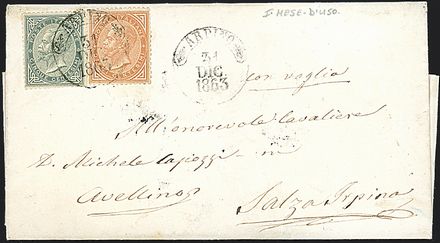 I° MESE-D'USO.
ARDITO
31
DIC.
1863
con vaglia
All'onorevole Cavaliere
D. Michele Capozzi = in
Avellino
Salza Irpina